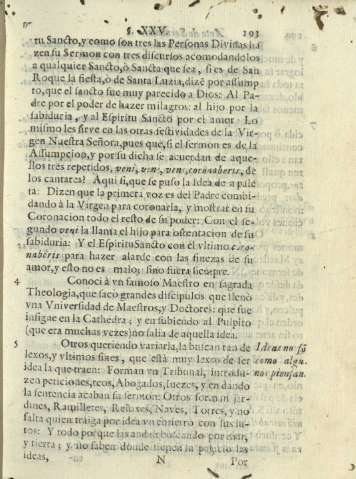 §. XXV. 203
tu Sancto, y como son tres las Personas Divinas ha
zen su Sermon con tres discursos acomodandolos
a qualquier Sancto, ò Sancta que sea, si es de San
Roque la fiesta, ò de Santa Luzia, dizẽ por assump
to, que el sancto fue muy parecido a Dios: Al Pa-
dre por el poder de hazer milagros: al hijo por la
sabiduria, y al Espiritu Sancto por el amor. Lo
mismo les sirve en las otras festividades de la Vir-
gen Nuestra Señora, pues que, si el sermon es de la
Assumpcion, y por su dicha se acuerdan de aque-
llos tres repetidos, veni, veni, veni, coronaberis, de
los cantares? Aqui si, que se puso la Idea de a pale
ta: Dizen que la primera voz es del Padre combi-
dando à la Virgen para coronarla, y mostrar en su
Coronacion todo el resto de su poder: Con el se-
gundo veni la llama el hijo para ostentacion de su
sabiduria: Y el Espiritu Sancto con el vltimo coro-
naberis para hazer alarde con las finezas de su
amor, y esto no es malo, sino fuera siempre.
4 Conoci à vn famoso Maestro en sagrada
Theologia, que sacò grandes discipulos que llenò
vna Vniversidad de Maestros, y Doctores: que fue
insigne en la Cathedra; y en subiendo al Pulpito
(que era muchas vezes) no salia de aquella idea.
5 Otros queriendo variarla, la buscan tan de
lexos, y vltimos fines, que està muy lexos de ser
idea la que traen: Forman vn Tribunal, introdu-
zen peticiones, reos, Abogados, juezes, y en dando
la sentencia acaban su sermon: Otros forman jar-
dines, Ramilletes, Reloxes, Naves, Torres, y no
falta quien traiga por idea vn entierro con sus lu-
tos: Y todo porque las andan buscando por mar,
y tierra; y no saben donde tienen la
ideas,
Ideas no sõ
como algu-
nos piensan.
N Por